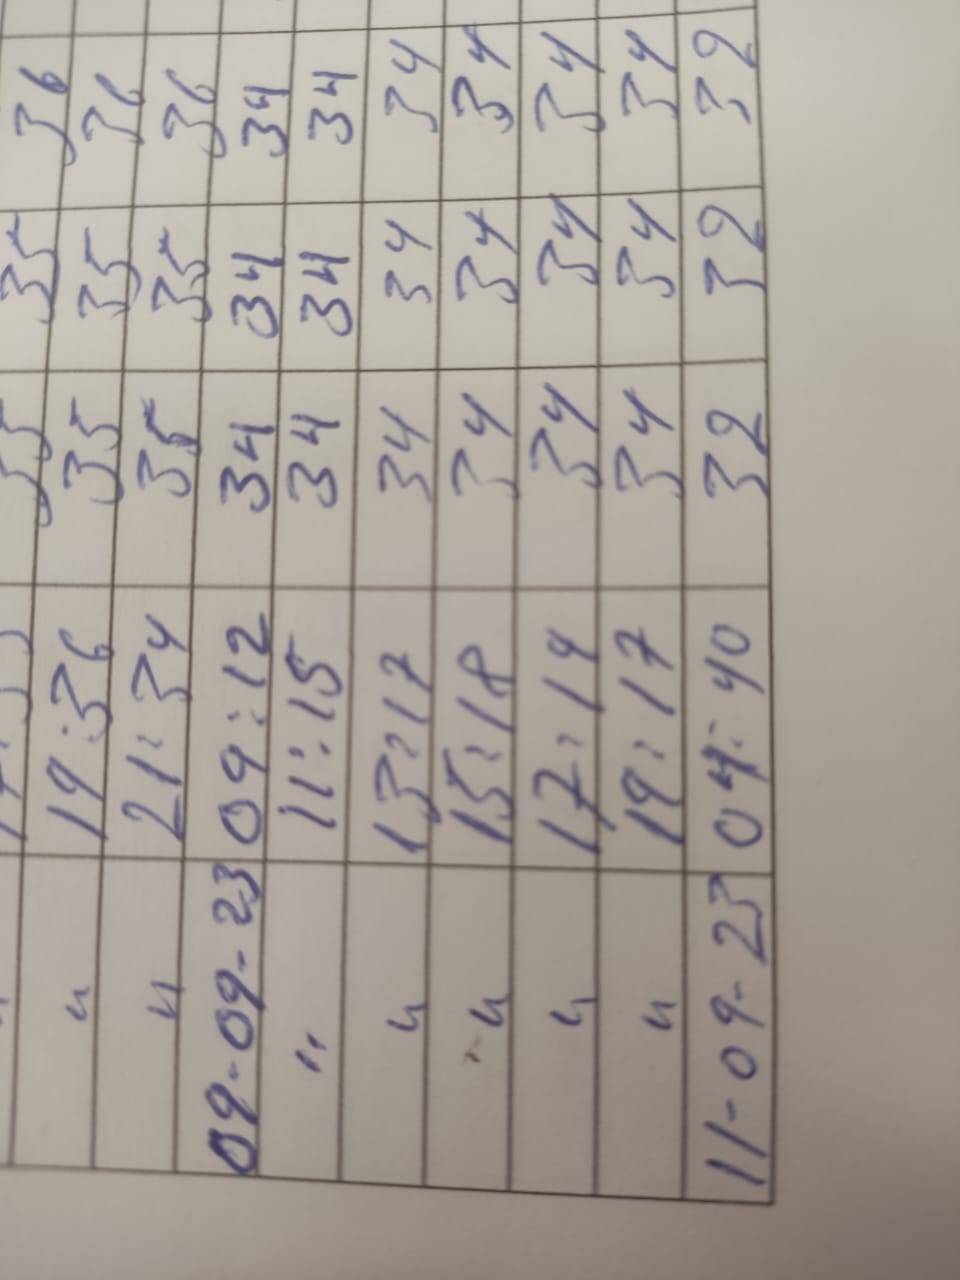 35 35 36
" 19:36 35 35 36
" 21:34 35 35 36
09-09-23 09:12 34 34 34
" 11:15 34 34 34
" 13:17 34 34 34
" 15:18 34 34 34
" 17:14 34 34 34
" 19:17 34 34 34
11-09-23 04:40 32 32 32